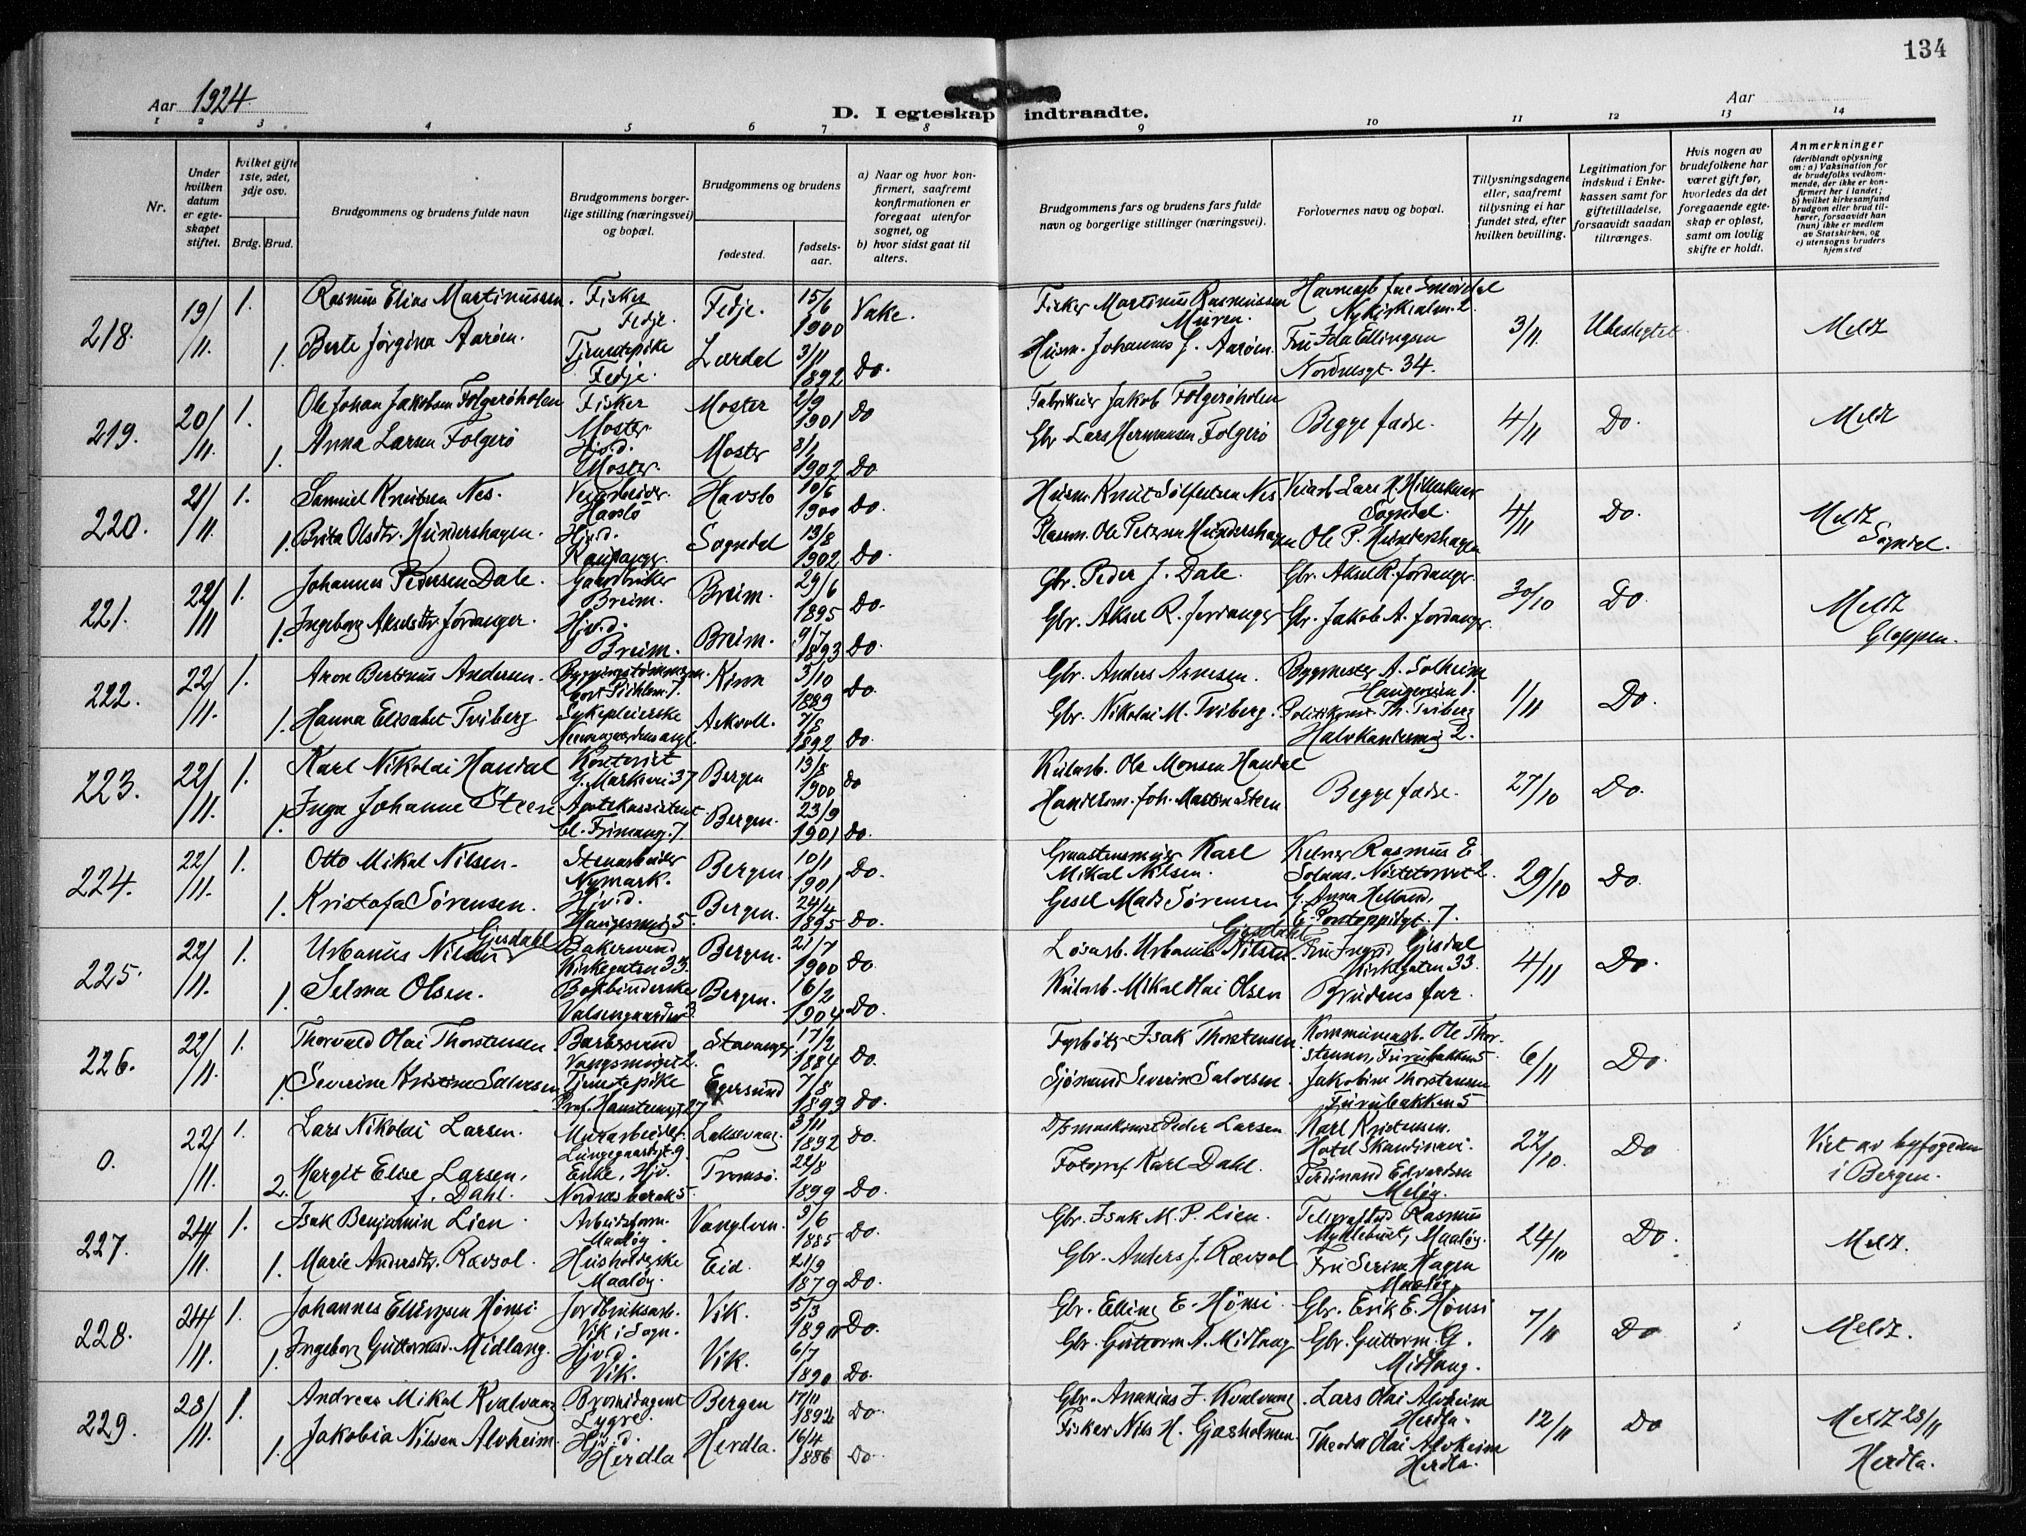 134
Aar 1924.
D. I egteskap indtraadte.
Aar
1 2 3 4 5 6 7 8 9 10 11 12 13 14
Nr.
Under hvilken datum er egteskapet stiftet.
hvilket gifte 1ste, 2det, 3dje osv.
Brdg. Brud.
Brudgommens og brudens fulde navn
Brudgommens borgerlige stilling (næringsvei) og bopæl.
Brudgommens og brudens
fødested.
fødselsaar.
a) Naar og hvor konfirmert, saafremt konfirmationen er foregaat utenfor sognet, og
b) hvor sidst gaat til alters.
Brudgommens fars og brudens fars fulde navn og borgerlige stillinger (næringsvei).
Forlovernes navn og bopæl.
Tillysningsdagene eller, saafremt tillysning ei har fundet sted, efter hvilken bevilling.
Legitimation for indskud i Enkekassen samt for giftetilladelse, forsaavidt saadan tiltrænges.
Hvis nogen av brudefolkene har været gift før, hvorledes da det foregaaende egteskap er opløst, samt om lovlig skifte er holdt.
Anmerkninger
(deriblandt oplysning om: a) Vaksination for de brudefolks vedkommende, der ikke er konfirmert her i landet; b) hvilket kirkesamfund brudgom eller brud tilhører, forsaavidt han (hun) ikke er medlem av Statskirken, og c) utensogns bruders hjemsted
218. 19/11. 1. Rasmus Elias Martinussen. Fisker Fedje. Fedje. 15/6 1900 Vake. Fisker Martinus Rasmussen Muren. Nykirkealm. 2. 3/11 Ubeslegtet Meldt
1. Berte Jørgina Aarøen. Tjenestepike Fedje. Lærdal 3/11 1892 Do. Husm. Johannes J. Aarøen. Fru Ida Ellingsen Nordnesgt. 34.
219. 20/11. 1. Ole Johan Jakobsen Folgerøholen Fisker Moster Moster 2/9 1901 Do Fabrikeier Jakob Folgerøholen Begge fædre. 4/11 Do. Meldt
1. Anna Larsen Folgerø Hjvd. Moster. Moster 1902 Do Gbr Lars Hermansen Folgerø
220. 21/11. 1. Samuel Knutsen Nes. Veiarbeider Havslo Havslo 10/6 1900 Do. Husm. Knut Sølfestsen Nes Veiarb. Lars Sogndal. 4/11 Do. Meldt Sogndal.
1. Brita Olsdtr. Hundershagen. Hjvd. Kaupanger Sogndal 13/8 1902 Do Plassm. Ole Petersen Hundershagen Ole P. Hundershagen
221. 22/11 1. Johannes Pedersen Dale. Gaardbruker Breim. Breim. 29/6 1895 Do. Gbr. Peder J. Dale. Gbr. Aksel R. Jordanger. 30/10 Do Meldt Gloppen.
1. Ingeborg Akselsdtr. Jordanger. Hjvd. Breim. Breim. 9/7 1893 Do. Gbr. Aksel R. Jordanger Gbr. Jakob A. Jordanger.
222. 22/11. 1. Aron Bertinus Andersen. Kinn 3/10 1889 Do. Gbr. Anders Arnesen. Bygmester A. Solheim Haugeveien 1. 1/11 Do
1. Hanna Elisabet Tviberg Sykepleierske Askvoll. 7/8 1892 Do. Gbr. Nikolai M. Tviberg. Politikonst. Th. Tviberg 2.
223. 22/11. 1. Karl Nikolai Handal Kontorist G. Markvei 37 Bergen 13/8 1900 Do Kularb. Ole Monsen Handal Begge fædre. 27/10 Do.
1. Inga Johanne Steen Apotekassistent Frimang. 7. Bergen. 23/9 1901 Do. Handelsm. Joh. Martin Steen
224. 22/11. 1. Otto Mikal Nilsen. Stenarbeider Nymark. Bergen 10/1 1901 Do. Graastensmurer Karl Mikal Nilsen. Kelner Rasmus E. 2. 29/10 Do
1. Kristofa Sørensen. Hjvd. Haugesmug 5. Bergen. 24/4 1895 Do. Gesel Mads Sørensen Anna Helland, E. Pontoppidgt. 7.
225. 22/11. 1. Urbanus Nilsen Gjesdahl Bakersvend Kirkegaten 33. Bergen. 21/7 1900 Do Løsarb. Urbanus Nilsen Gjesdahl Fru Ingrid Gjesdal Kirkegaten 33. 4/11 Do.
1. Selma Olsen. Bokbinderske Bergen. 16/2 1904 Do. Kularb. Mikal Olai Olsen Brudens far.
226. 22/11. 1. Thorvald Olai Thorstensen Barbersvend Vangsmuget 2. Stavanger 17/2 1884 Do. Fyrbøter Isak Thorstensen. Kommunearb. Ole Thorstensen, Furubakken 5. 6/11 Do.
1. Severine Kristine Salvesen Tjenestepike Prof. Hansteensgt 27 Egersund 7/8 1893 Do. Sjømand Severin Salvesen. Jakobine Thorstensen Furubakken 5
0. 22/11. 1. Lars Nikolai Larsen. Murarbeider. 9. Laksevaag. 3/11 1892 Do. D/smaskinist Peder Larsen Karl Kristensen. Hotel Skandinavi. 22/10. Do Viet av byfogden i Bergen.
2. Margit Elise Larsen, f. Dahl. Enke, Hjv. 5. Tromsø. 22/8 1899 Do. Fotograf Karl Dahl. Ferdinand Edvardsen Meløy.
227. 24/11. 1. Isak Benjamin Lien. Arbeidsform. Maaløy. Vanylven. 3/6 1885 Do. Gbr. Isak M. P. Lien. Rasmus Myklebust, Maaløy. 24/10 Do. Meldt.
1. Marie Andersdtr. Rævsol. Husholderske Maaløy. Eid. 21/9 1879 Do. Gbr. Anders J. Rævsol Fru Serine Hagen Maaløy
228. 24/11. 1. Johannes Ellingsen Hønsi. Jordbruksarb. Vik i Sogn. Vik. 5/3 1890 Do. Gbr. Elling E. Hønsi. Gbr. Erik E. Hønsi 7/11 Do Meldt.
1. Ingeborg Guttormsd. Midlang. Hjvd. Vik. Vik. 6/7 1890 Do. Gbr. Guttorm A. Midlang Gbr. Guttorm G. Midlang.
229. 28/11. 1. Andreas Mikal Kvalvaag Lygre. Bergen 17/11 1892 Do. Gbr. Ananias J. Kvalvaag Lars Olai Alvheim Herdla. 12/11 Do Meldt 28/11 Herdla.
1. Jakobia Nilsen Alvheim. Hjvd. Herdla Herdla. 16/4 1886 Do. Fisker Nils H. Gjæsholmen. Theodor Olai Alvheim Herdla.